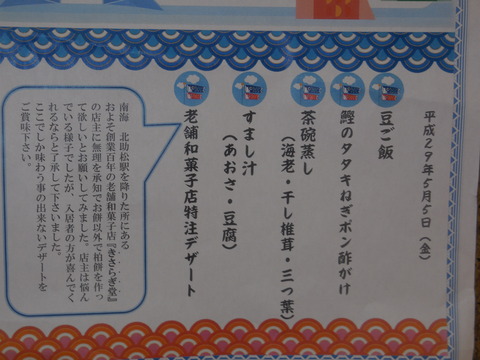 平成29年5月5日(金)
豆ご飯
鰹のタタキねぎポン酢がけ
茶碗蒸し
(海老・干し椎茸・三つ葉)
すまし汁
(あおさ・豆腐)
老舗和菓子店特注デザート
南海 北助松駅を降りた所にある
およそ創業百年の老舗和菓子店『きさらぎ堂』
の店主に無理を承知でお餅以外で柏餅を作っ
て欲しいとお願いしてみました。店主は悩ん
でいる様子でしたが、入居者の方が喜んでく
れるならと了承して下さいました。
ここでしか味わう事の出来ないデザートを
ご賞味下さい。